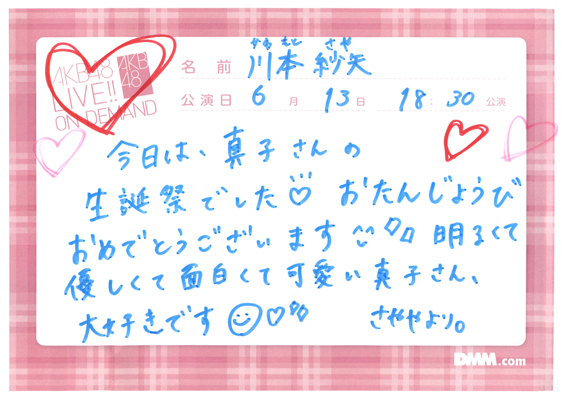 AKB48
LIVE!!
ON DEMAND
AKB
48
かわ もと さや
名前 川本 紗矢
公演日 6 月 13 日 18 : 30 公演
今日は、真子さんの
生誕祭でした♡ おたんじょうび
おめでとうございます 明るくて
優しくて面白くて可愛い真子さん、
大好きです さややより。
DMM.com